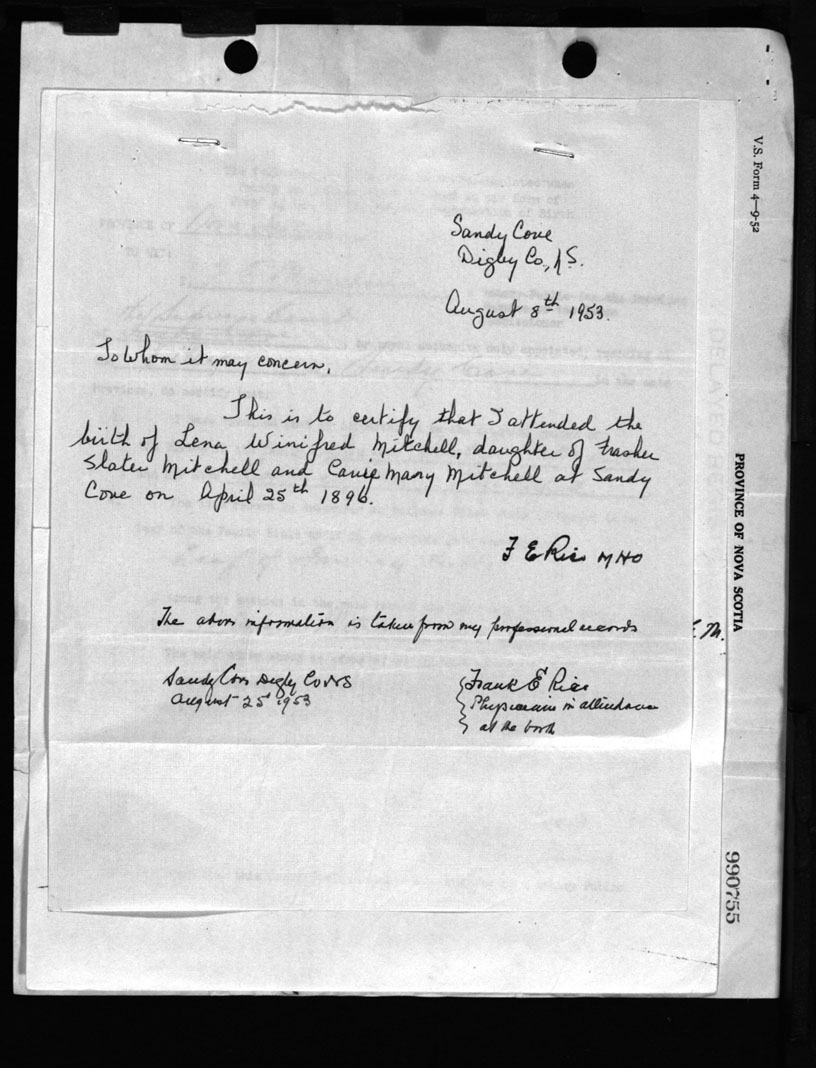 V.S. Form 4—9-52
Sandy Cove
Digby Co., N.S.
August 8th 1953.
To Whom it may concern,
This is to certify that I attended the
birth of Lena Winifred Mitchell, daughter of Frasher
Slater Mitchell and Carrie Mary Mitchell at Sandy
Cove on April 25th 1896.
F E Rice MHO
PROVINCE OF NOVA SCOTIA
The above information is taken from my professional records
Sandy Cove Digby Co NS
August 25 1953
Frank E Rice
Physician in attendance
at the birth
990755
PROVINCE OF
DELAYED